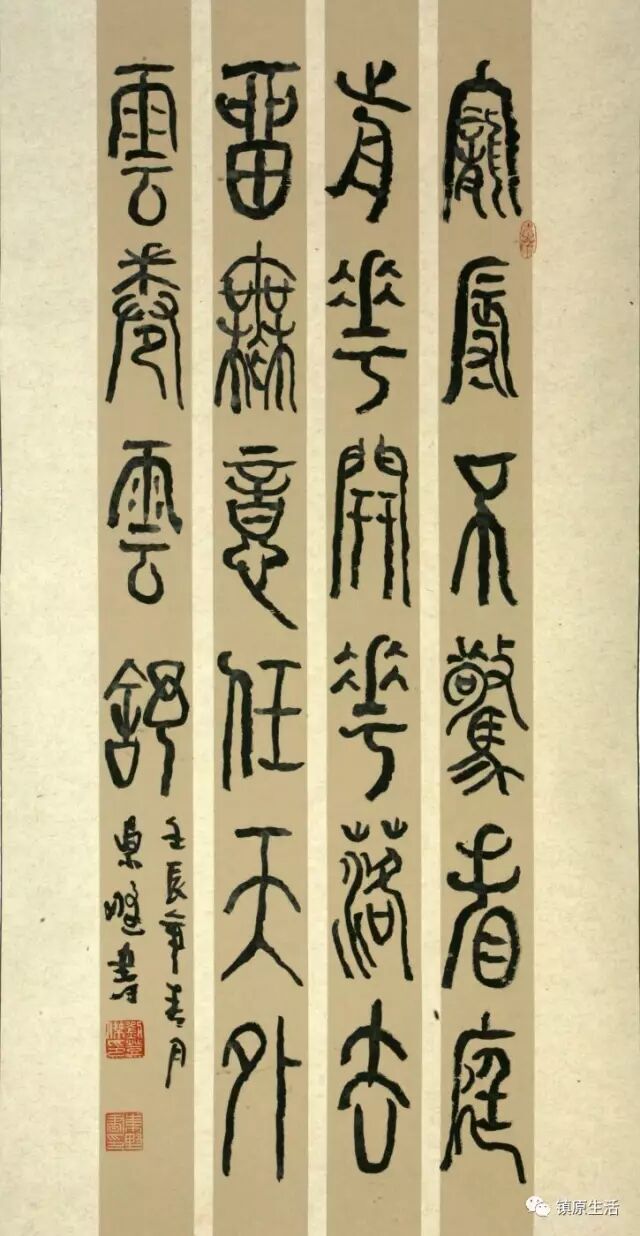 寵辱不驚看庭
前花開花落去
留無意任天外
雲卷雲舒
壬辰年春月
書
镇原生活